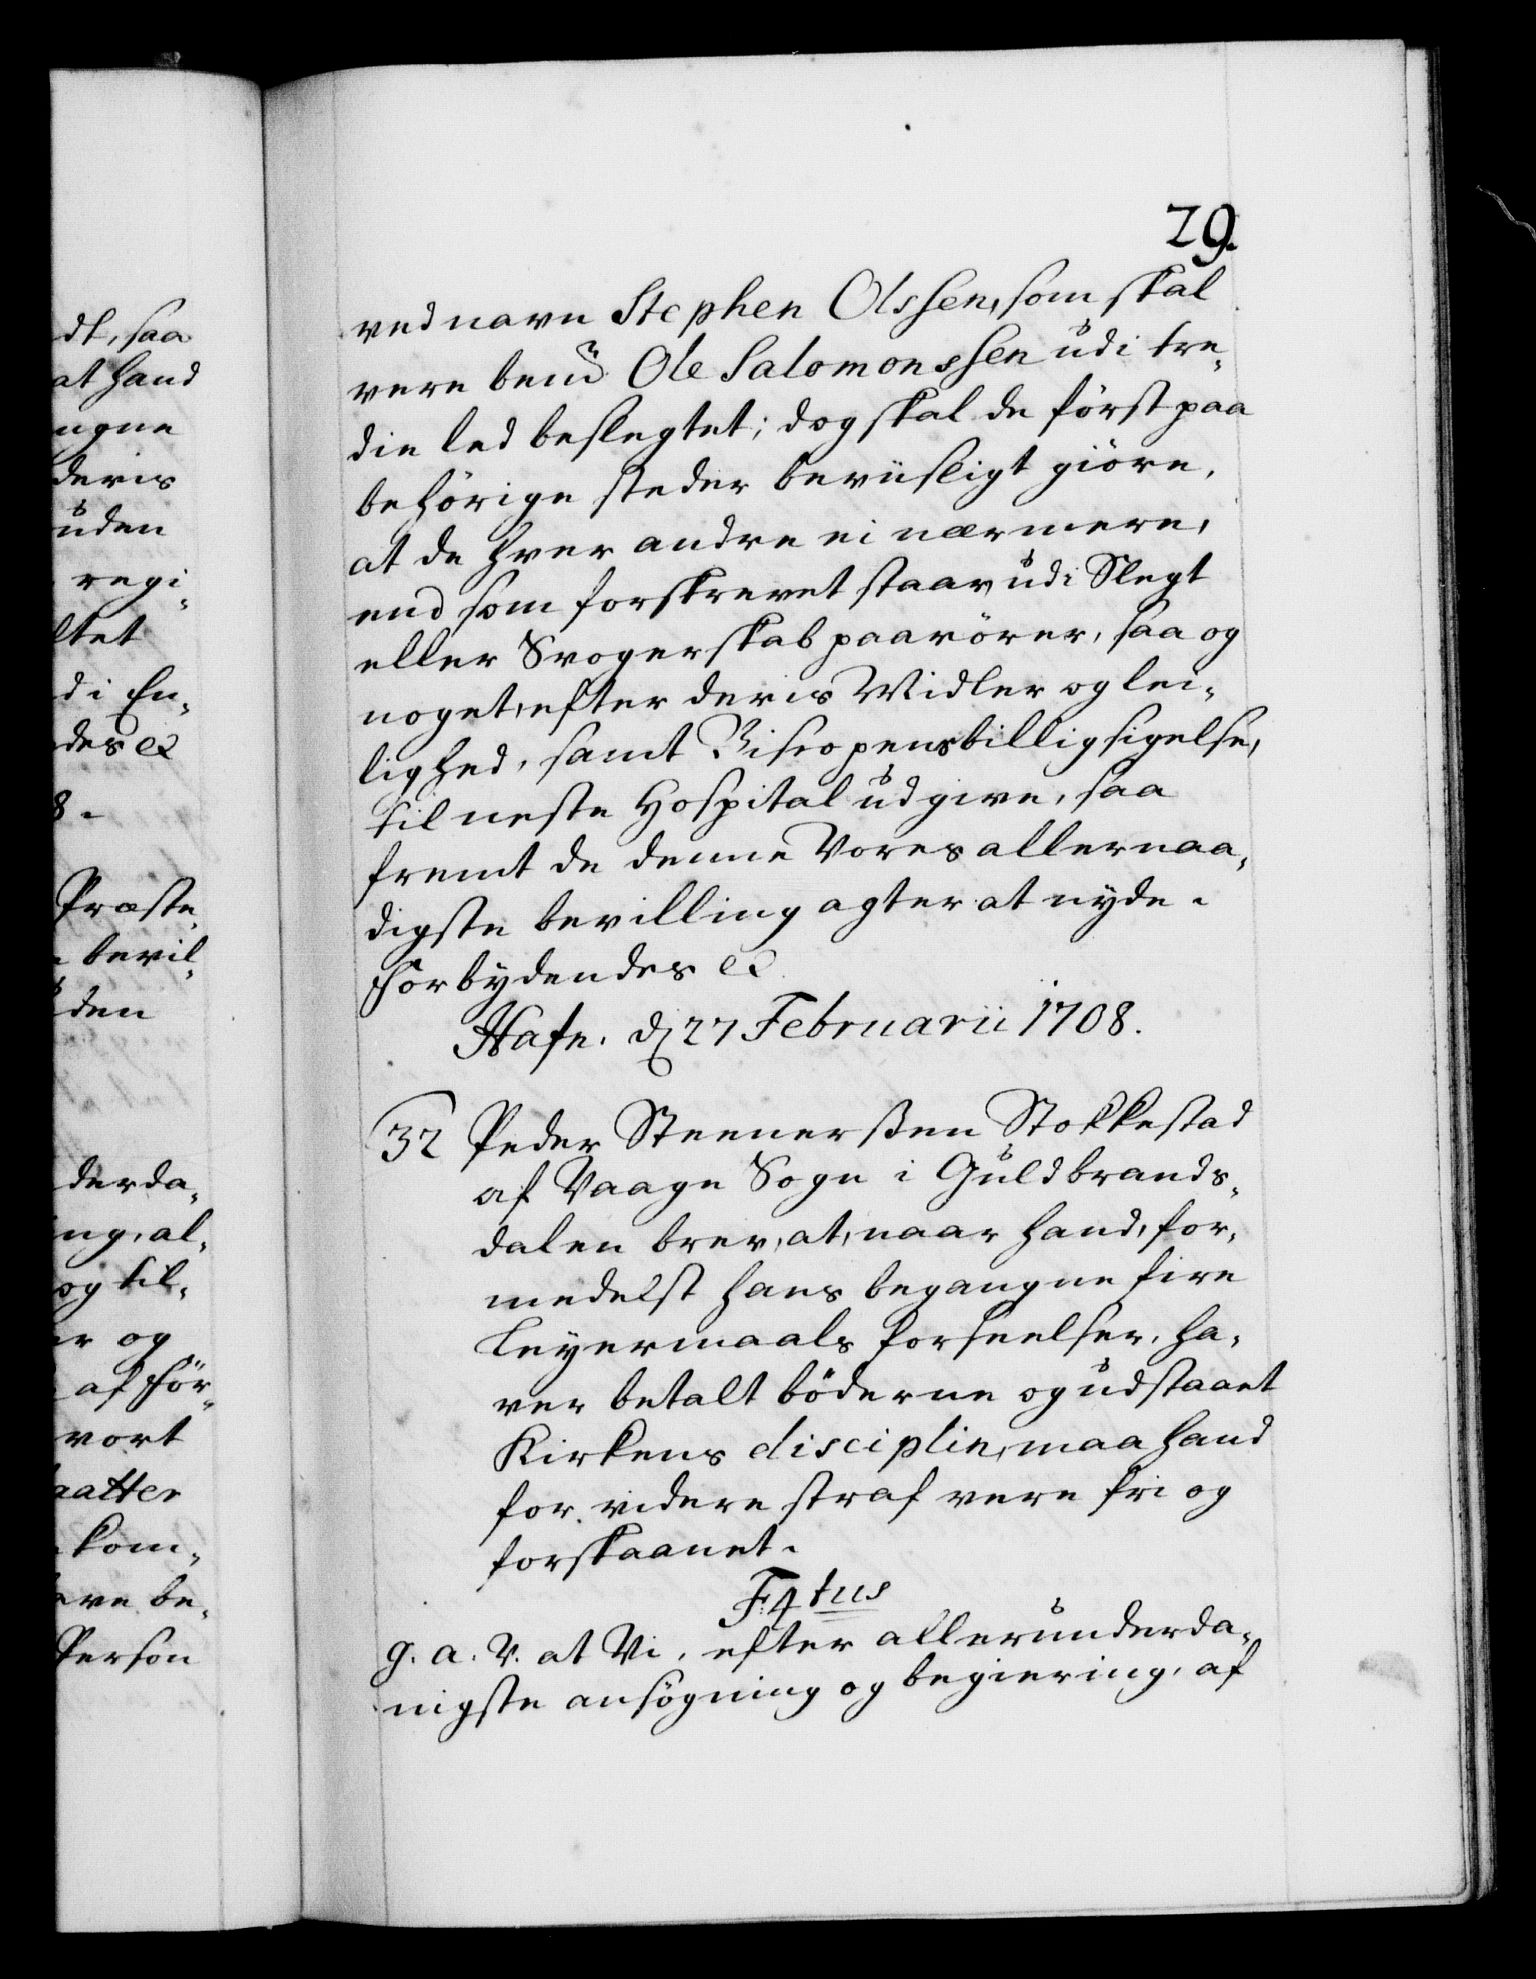 29.
ved navn Stephen Olssen, som skal
vere bem̃te Ole Salomonssen udi tre¬
die led beslegtet; dog skal de först paa
behörige steder beviisligt giöre,
at de hver andre ei nærmere,
end som forskrevet staar, udi Slegt
eller Svogerskab paarörer, saa og
noget, efter deris Midler og lei¬
lighed, samt Biscopens billigsigelse,
til neste Hospital udgive, saa
fremt de denne Vores allernaa¬
digste bevilling agter at nyde.
Forbydendes etc
Hafn. d 27 Februarii 1708.
32 Peder Steenerssen Stokkestad
af Vaage Sogn i Guldbrands¬
dalen brev, at, naar hand, for¬
medelst hans begangne fire
Leyermaals forseelser, ha¬
ver betalt böderne og udstaaet
Kirkens disciplin, maa hand
for videre straf vere fri og
forskaanet.
F. 4tus
g. a. V. at Vi, efter allerunderda¬
nigste ansögning og begiering, af
dt, saa
at hand
ngne
deris
uden
regi¬
ltet
di En¬
des etc
8.
Præste
bevil¬
den
derda¬
ing, al¬
og til¬
er og
af För¬
vort
aatter
kom¬
ere be¬
Person